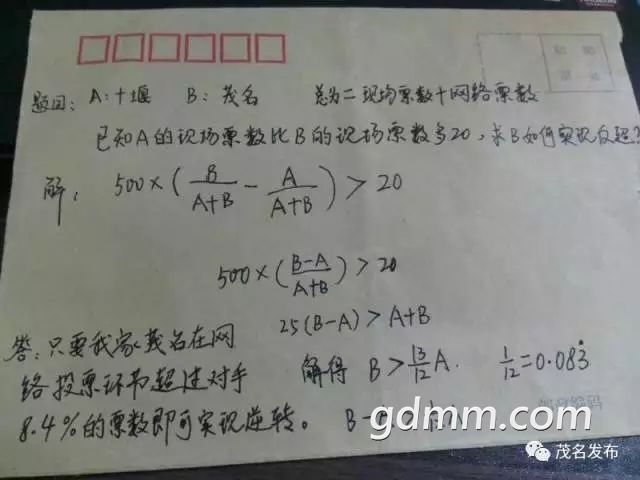 题目: A:十堰 B: 茂名 总分=现场票数+网络票数
已知A的现场票数比B的现场票数多20,求B如何实现反超?
解: 500×(B/(A+B) - A/(A+B)) > 20
500×((B-A)/(A+B)) > 20
25(B-A) > A+B
解得 B > 13/12 A. 1/12 = 0.083̇
答:只要我家茂名在网
络投票环节超过对手
8.4%的票数即可实现逆转。
gdmm.com
茂名发布